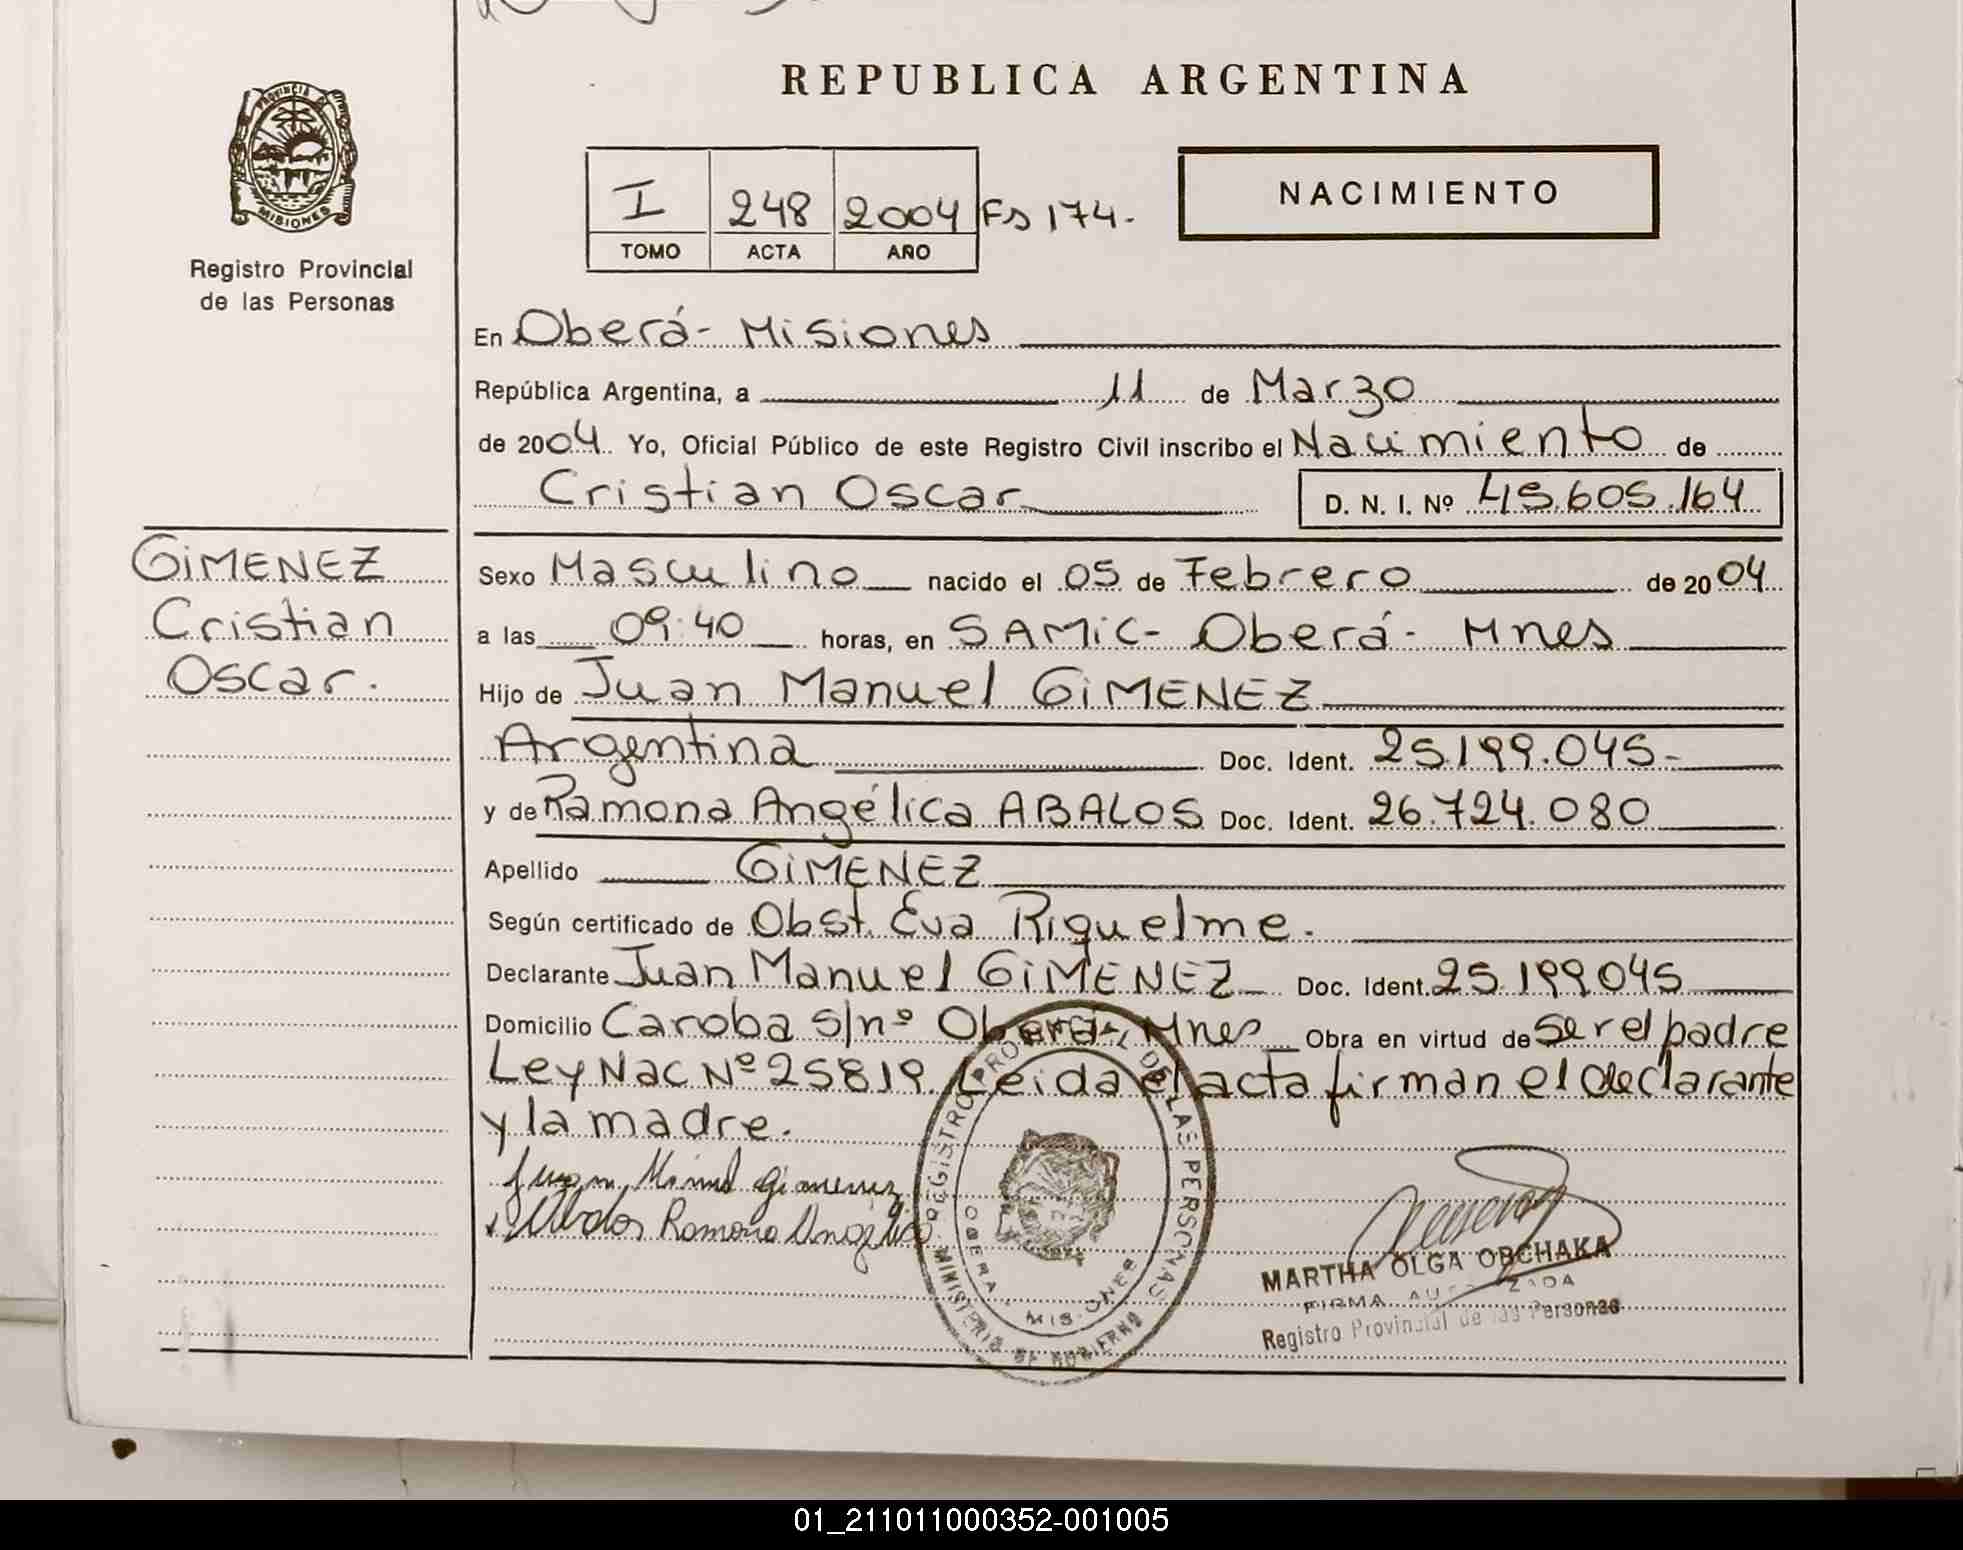 REPUBLICA ARGENTINA
PROVINCIA DE
MISIONES
Registro Provincial
de las Personas
I 248 2004 Fs 174.-
TOMO ACTA AÑO
NACIMIENTO
En Oberá- Misiones
República Argentina, a 11 de Marzo
de 2004. Yo, Oficial Público de este Registro Civil inscribo el Nacimiento de
Cristian Oscar D. N. I. Nº 45.605.164
GiMENEZ
Cristian
Oscar.
Sexo Masculino nacido el 05 de Febrero de 2004
a las 09:40 horas, en SAMiC- Oberá- Mnes
Hijo de Juan Manuel GiMENEZ
Argentina Doc. Ident. 25.199.045-
y de Ramona Angélica ABALOS Doc. Ident. 26.724.080
Apellido GiMENEZ
Según certificado de Obst. Eva Riquelme.
Declarante Juan Manuel GiMENEZ Doc. Ident. 25.199045
Domicilio Caroba s/nº Oberá, Mnes Obra en virtud de ser el padre
Ley Nac Nº 25819. Leida el acta firman el declarante
y la madre.
Juan Manuel Gimenez
Abalos Ramona Angelica
REGISTRO PROVINCIAL DE LAS PERSONAS
MINISTERIO DE GOBIERNO
OBERA - MISIONES
MARTHA OLGA OBCHAKA
FIRMA AUTORIZADA
Registro Provincial de las Personas
01_211011000352-001005